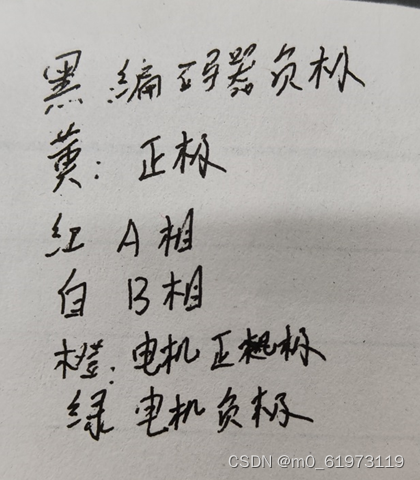 黑 编码器负极
黄: 正极
红 A相
白 B相
橙. 电机正极
绿 电机负极
CSDN @m0_61973119